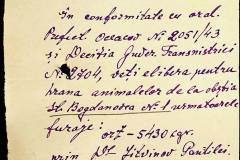 În conformitate cu ord.
Prefect. Oceacov № 2051/43
și Decizia Guver. Transnistriei
№ 2704, veți elibera pentru
hrana animalelor de la obștia
St. Bogdanovca № 1 urmatoarele
furaje:
orz - 5430 kgr.
prin Dl Litvinov Pantilei